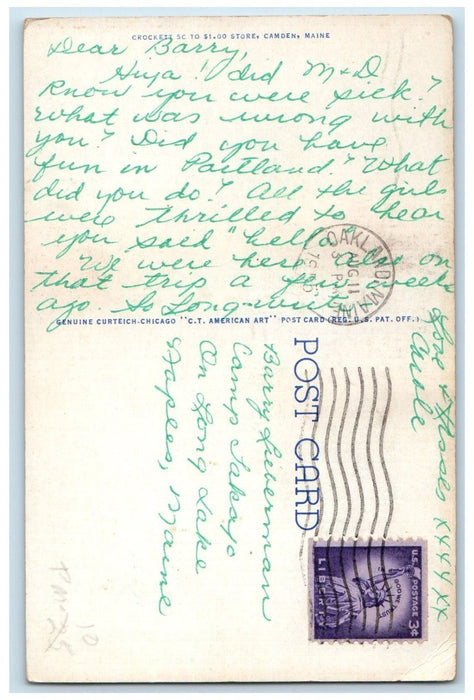 CROCKETT 5C TO $1.00 STORE, CAMDEN, MAINE
Dear Barry,
Hiya! Did M+D
know you were sick?
What was wrong with
you? Did you have
fun in Portland? What
did you do? All the girls
were thrilled to hear
you said "hello".
We were here also on
that trip a few weeks
ago. So Long-write
Love + Kisses XXXXXX
Carole
GENUINE CURTEICH-CHICAGO "C.T. AMERICAN ART" POST CARD (REG. U.S. PAT. OFF.)
POST CARD
OAKLAND MAINE
AUG 11
PM
U.S. POSTAGE 3¢
IN GOD WE TRUST
LIBERTY
Barry Luberman
Camp Takajo
On Long Lake
Naples, Maine